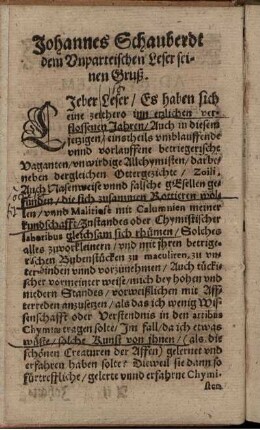 Johannes Schauberdt
dem Vnparteischen Leser sei-
nen Gruß.
LIeber Leser / Es haben sich
eine zeithero inn etzlichen ver-
flossenen Jahren / Auch in diesem
jetzigen / einstheils vmblauffende
vnnd vorlauffene betriegerische
Vaganten / vnwirdige Allchymisten / darbe-
neben dergleichen Ottergezichte / Zoili,
Auch Nasenweise vnnd falsche gSellen ge-
funden / die sich zusammen Rottieren wol-
len / vnnd Malitiosè mit Calumnien meiner
kundschafft / Zustandes oder Chymistischer
laboribus gleichsam sich rhümen / Solches
alles zuvorkleinern / vnd mit ihren betrieg-
rischen Bubenstücken zu maculiren, zu vn-
terdinden vnnd vorzunehmen / Auch tücki-
scher vormeinter weise / mich bey hohen vnd
niedern Standes / vorweißlichen mit Aff-
terreden anzusetzen / als das ich wenig Wis-
senschafft oder Verstendnis in den artibus
Chymiæ tragen solte / Im fall / da ich etwas
wüste / solche Kunst von ihnen / (als die
schönen Creaturen der Affen) gelernet vnd
erfahren haben solte? Dieweil sie dann so
fürtreffliche / gelerte vnnd erfahrne Chymi-
sten